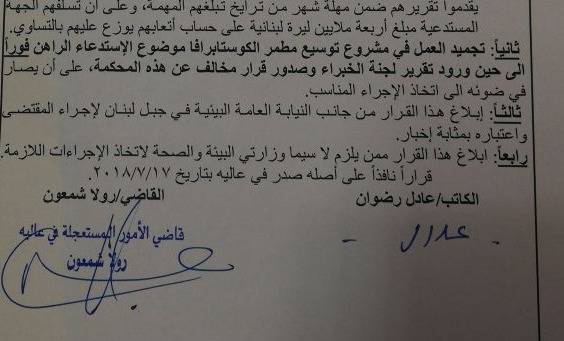 يقدموا تقريرهم ضمن مهلة شهر من تاريخ تبلغهم المهمة، وعلى ان تسلفهم الجهة
المستدعية مبلغ أربعة ملايين ليرة لبنانية على حساب أتعابهم يوزع عليهم بالتساوي.
ثانياً: تجميد العمل في مشروع توسيع مطمر الكوستابرافا موضوع الإستدعاء الراهن فوراً
الى حين ورود تقرير لجنة الخبراء وصدور قرار مخالف عن هذه المحكمة، على أن يصار
في ضوئه الى اتخاذ الإجراء المناسب.
ثالثاً: إبلاغ هذا القرار من جانب النيابة العامة البيئية في جبل لبنان لإجراء المقتضى
واعتباره بمثابة إخبار.
رابعاً: ابلاغ هذا القرار ممن يلزم لا سيما وزارتي البيئة والصحة لاتخاذ الإجراءات اللازمة.
قراراً نافذاً على أصله صدر في عاليه بتاريخ ٢٠١٨/٧/١٧.
الكاتب/عادل رضوان القاضي/رولا شمعون
قاضي الأمور المستعجلة في عاليه
رولا شمعون